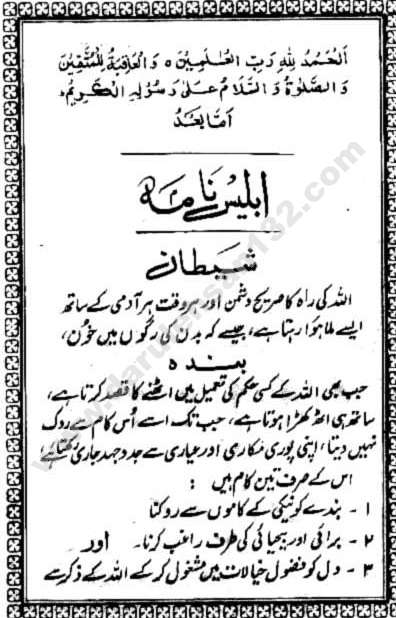 اَلْحَمْدُ لِلّٰهِ رَبِّ الْعٰلَمِیْنَ ہ وَ الْعَاقِبَۃُ لِلْمُتَّقِیْنَ
وَالصَّلٰوۃُ وَ السَّلَامُ عَلٰی رَسُوْلِہِ الْکَرِیْمِ ہ
اَمَّا بَعْدُ
ابلیس نامہ
شیطان
اللہ کی راہ کا صریح دشمن اور ہر وقت ہر آدمی کے ساتھ
ایسے ملا ہوا رہتا ہے، جیسے کہ بدن کی رگوں میں خون،
بندہ
جب بھی اللہ کے کسی حکم کی تعمیل میں اٹھنے کا قصد کرتا ہے،
ساتھ ہی اٹھ کھڑا ہوتا ہے، جب تک اسے اُس کام سے روک
نہیں دیتا، اپنی پوری مکاری اور عیاری سے جدوجہد جاری رکھتا ہے
اس کے صرف تین کام ہیں :
۱ - بندے کو نیکی کے کاموں سے روکنا
۲ - برائی اور بیحیائی کی طرف راغب کرنا۔ اور
۳ - دل کو فضول خیالات میں مشغول کر کے اللہ کے ذکر سے